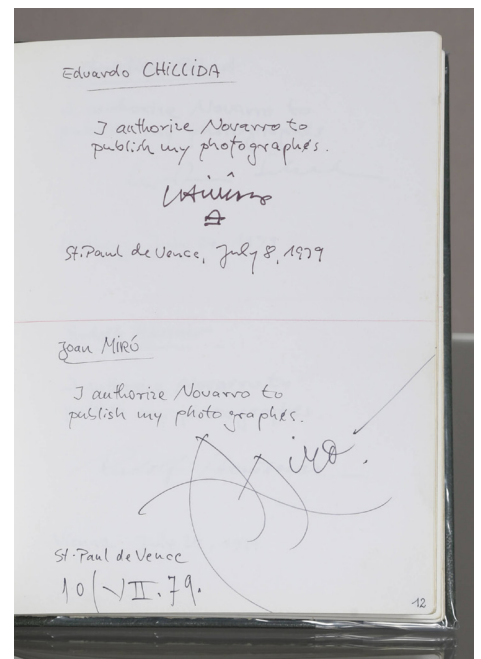 Eduardo CHILLIDA
I authorize Novarro to
publish my photographes.
Chillida
St. Paul de Vence, July 8, 1979
Joan MIRÓ
I authorize Novarro to
publish my photographes.
Miró.
St. Paul de Vence
10/VII.79.
12